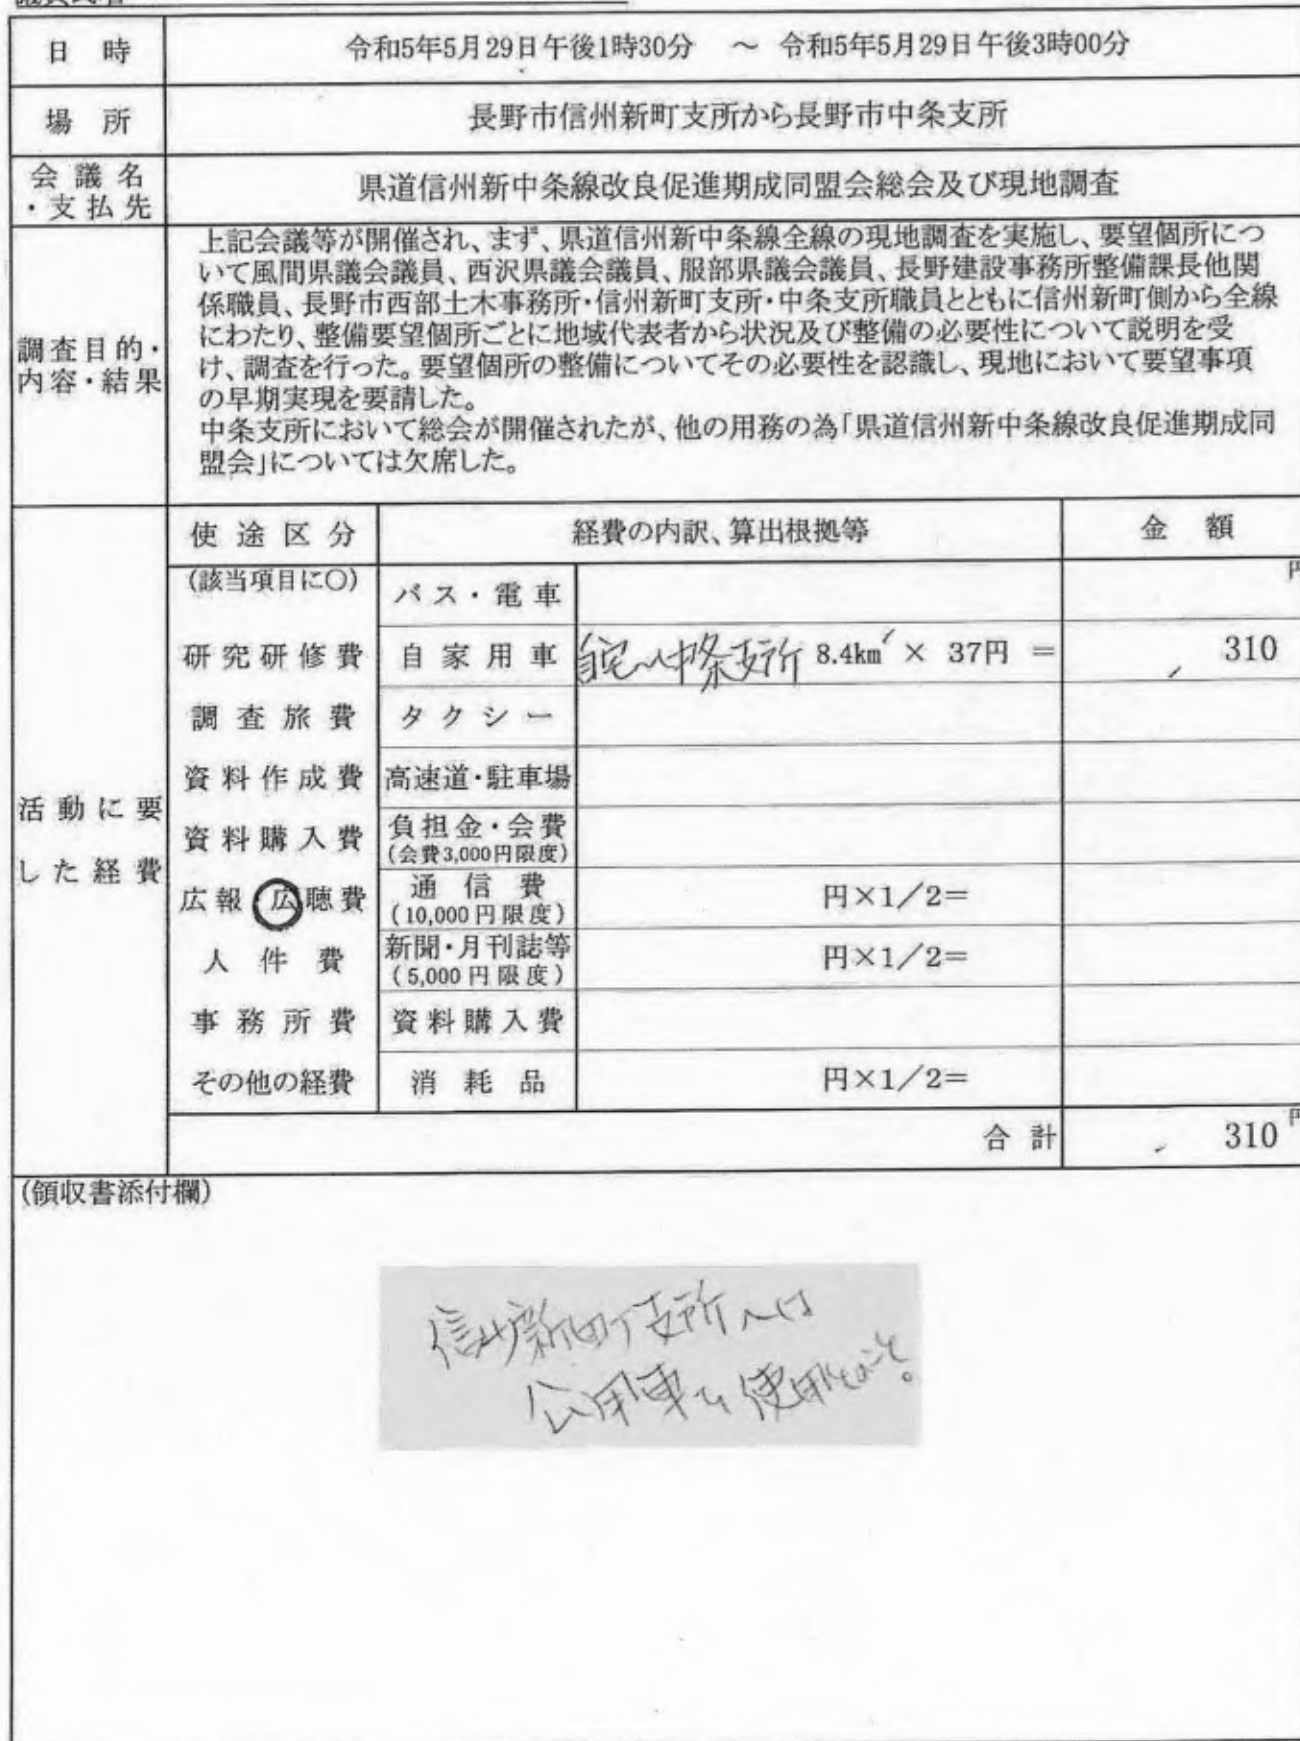 日 時 令和5年5月29日午後1時30分 ～ 令和5年5月29日午後3時00分
場 所 長野市信州新町支所から長野市中条支所
会 議 名
・支 払 先
県道信州新中条線改良促進期成同盟会総会及び現地調査
調査目的・
内容・結果
上記会議等が開催され、まず、県道信州新中条線全線の現地調査を実施し、要望個所につ
いて風間県議会議員、西沢県議会議員、服部県議会議員、長野建設事務所整備課長他関
係職員、長野市西部土木事務所・信州新町支所・中条支所職員とともに信州新町側から全線
にわたり、整備要望個所ごとに地域代表者から状況及び整備の必要性について説明を受
け、調査を行った。要望個所の整備についてその必要性を認識し、現地において要望事項
の早期実現を要請した。
中条支所において総会が開催されたが、他の用務の為「県道信州新中条線改良促進期成同
盟会」については欠席した。
活 動 に 要
し た 経 費
使 途 区 分 経費の内訳、算出根拠等 金 額
(該当項目に○)
バス・電車 円
研究研修費 自家用車 自宅～中条支所 8.4km × 37円 = 310
調査旅費 タクシー
資料作成費 高速道・駐車場
資料購入費 負担金・会費
(会費3,000円限度)
広報広聴費 通信費 円×1／2=
(10,000円限度)
人件費 新聞・月刊誌等 円×1／2=
(5,000円限度)
事務所費 資料購入費
その他の経費 消耗品 円×1／2=
合 計 310 円
(領収書添付欄)
信州新町支所へは
公用車を使用とのこと。